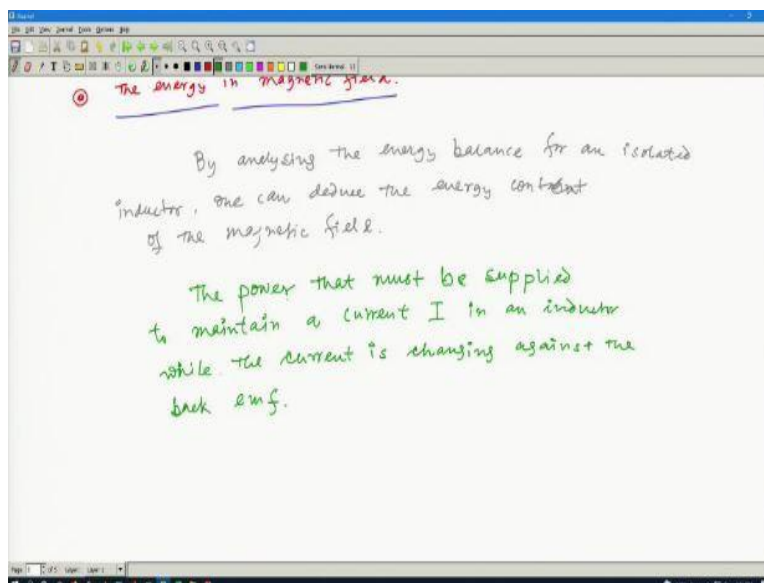 The energy in magnetic field.
By analysing the energy balance for an isolated
inductor, one can deduce the energy content
of the magnetic field.
The power that must be supplied
to maintain a current I in an inductor
while the current is changing against the
back emf.